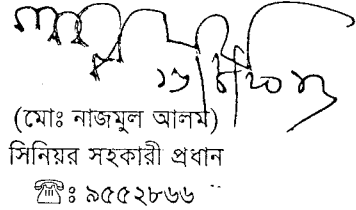 (মোঃ নাজমুল আলম)
সিনিয়র সহকারী প্রধান
☎ঃ ৯৫৫২৮৬৬